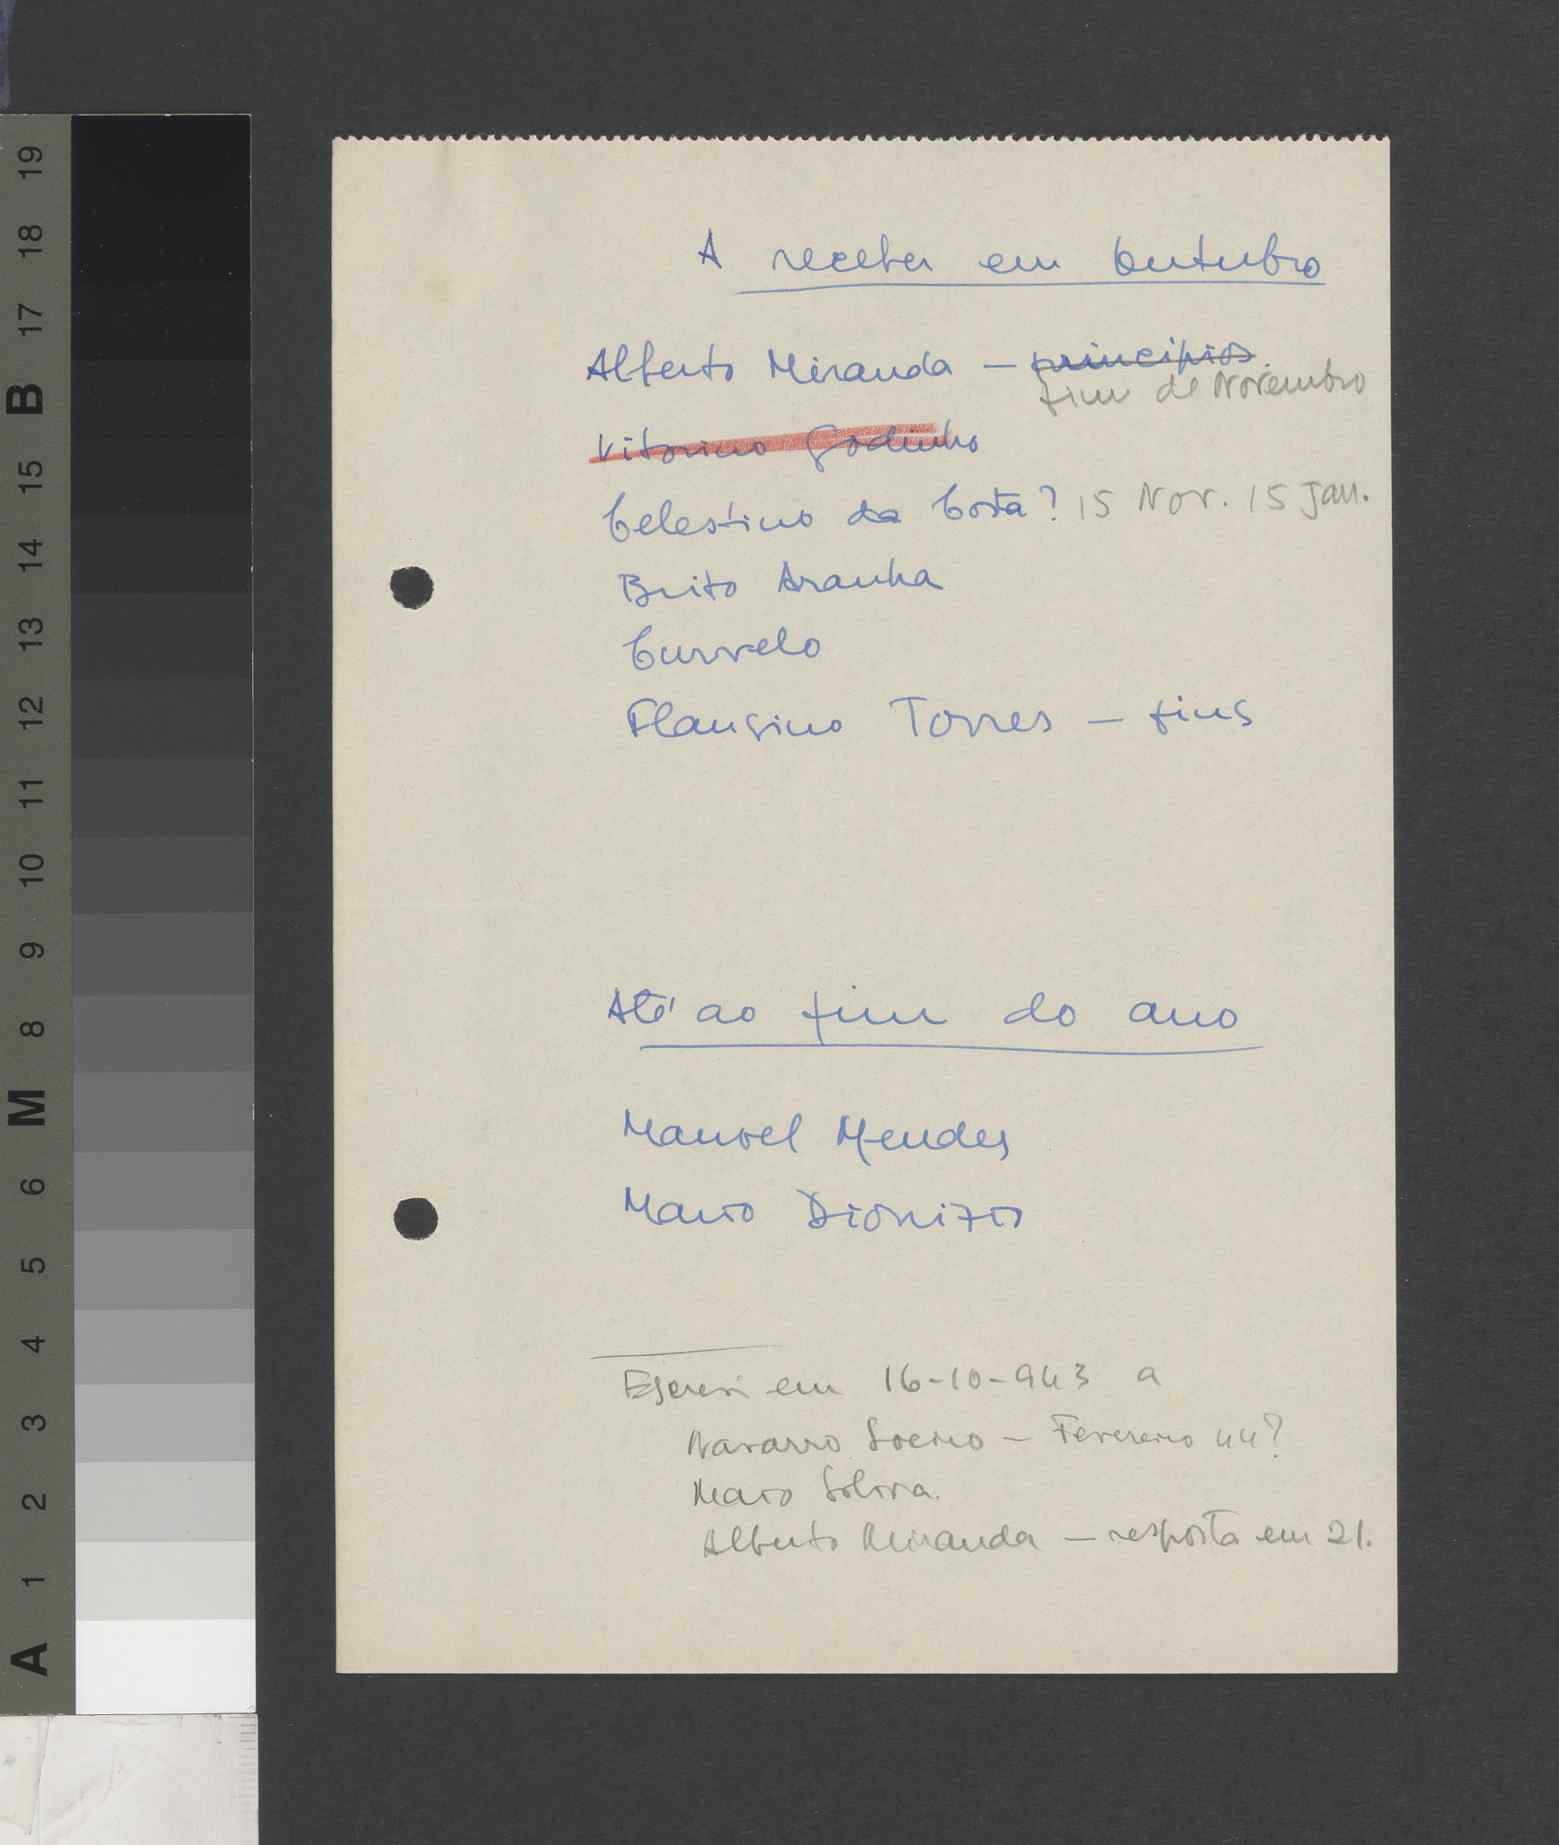 A receber em Outubro
Alberto Miranda — princípios
fim de Novembro
Vitorino Godinho
Celestino da Costa? 15 Nov. 15 Jan.
Brito Aranha
Curvelo
Flausino Torres — fins
Até ao fim do ano
Manuel Mendes
Mario Dionizio
Escrevi em 16-10-943 a
Navarro Soeiro — Fevereiro 44?
Mario Silva.
Alberto Miranda — resposta em 21.
19
18
17
B
15
14
13
12
11
10
9
8
M
6
5
4
3
2
1
A